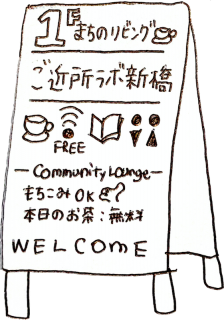 1F まちのリビング
ご近所ラボ新橋
FREE
Community Lounge
もちこみOK
本日のお茶:無料
WELCOME